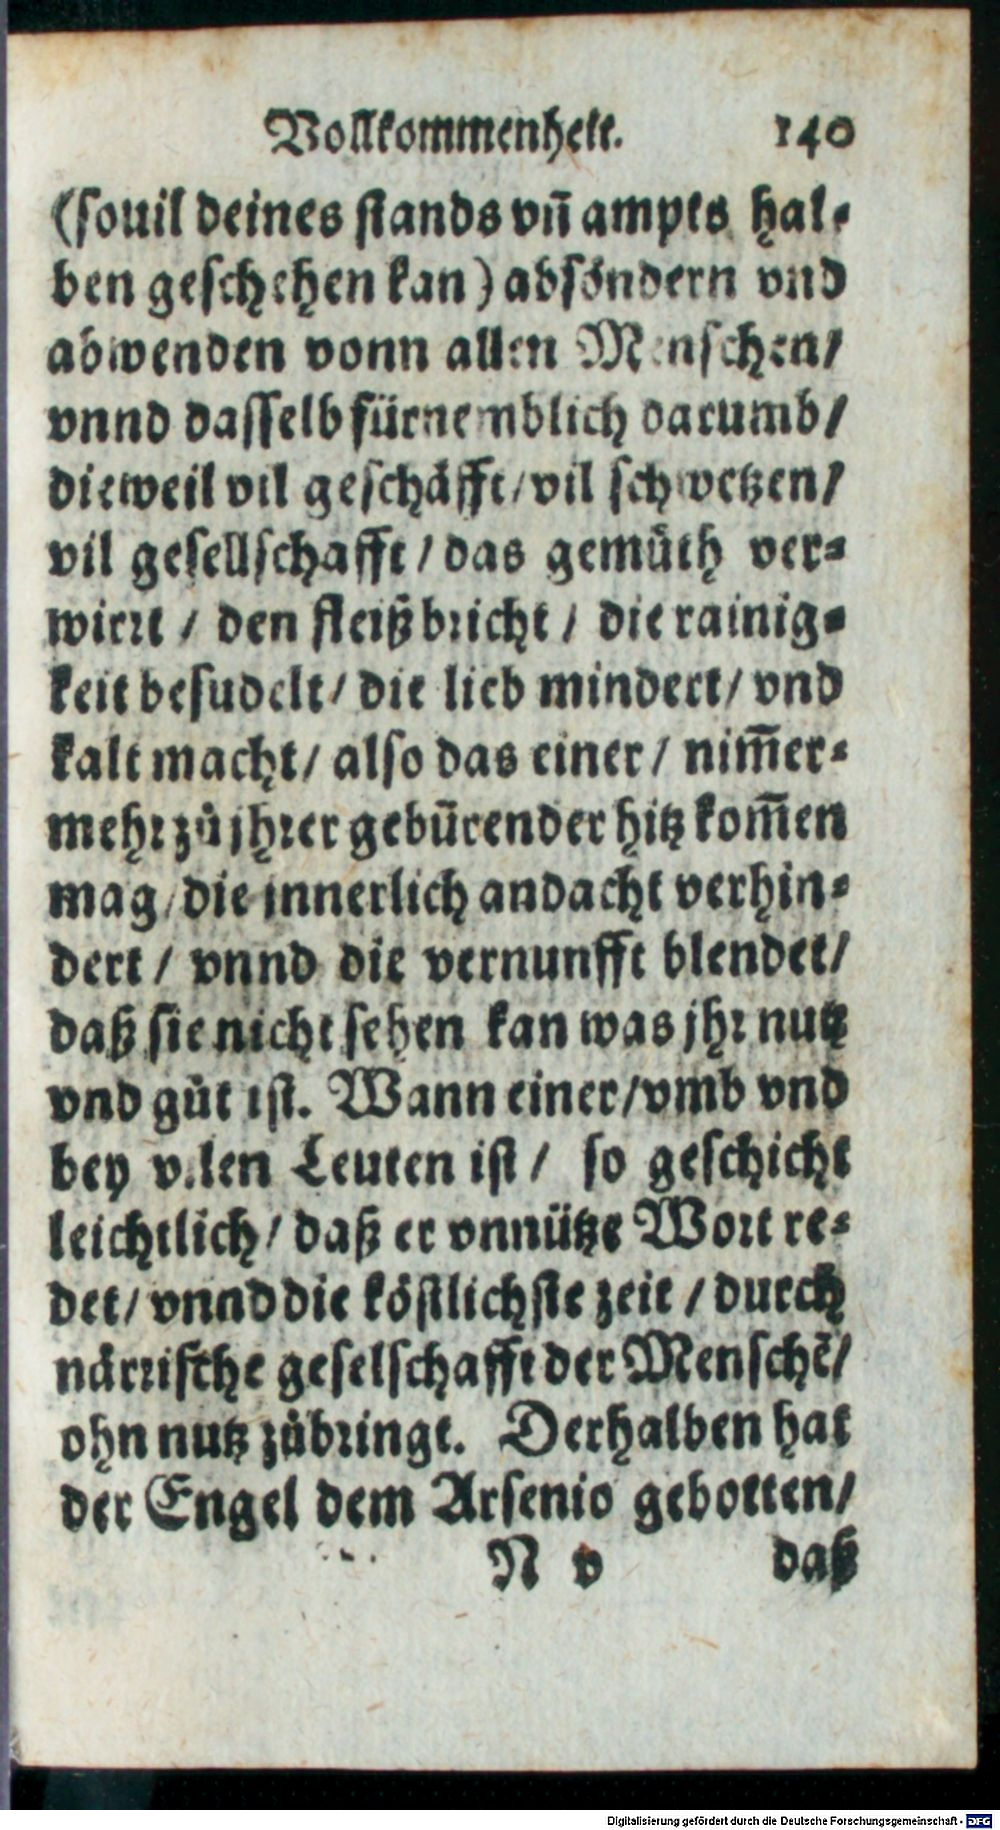 Vollkommenheit. 140
(souil deines stands vñ ampts hal-
ben geschehen kan) absöndern vnd
abwenden vonn allen Menschen/
vnnd dasselb fürnemblich darumb/
dieweil vil geschäfft/ vil schwetzen/
vil gesellschafft/ das gemüth ver-
wirrt/ den fleiß bricht/ die rainig-
keit besudelt/ die lieb mindert/ vnd
kalt macht/ also das einer/ nim̃er-
mehr zů jhrer gebürender hitz kom̃en
mag/ die innerlich andacht verhin-
dert/ vnnd die vernunfft blendet/
daß sie nicht sehen kan was jhr nutz
vnd gůt ist. Wann einer/ vmb vnd
bey vilen Leuten ist/ so geschicht
leichtlich/ daß er vnnütze Wort re-
det/ vnnd die köstlichste zeit/ durch
närrische geselschafft der Menschẽ/
ohn nutz zůbringt. Derhalben hat
der Engel dem Arsenio gebotten/
N v daß
Digitalisierung gefördert durch die Deutsche Forschungsgemeinschaft - DFG